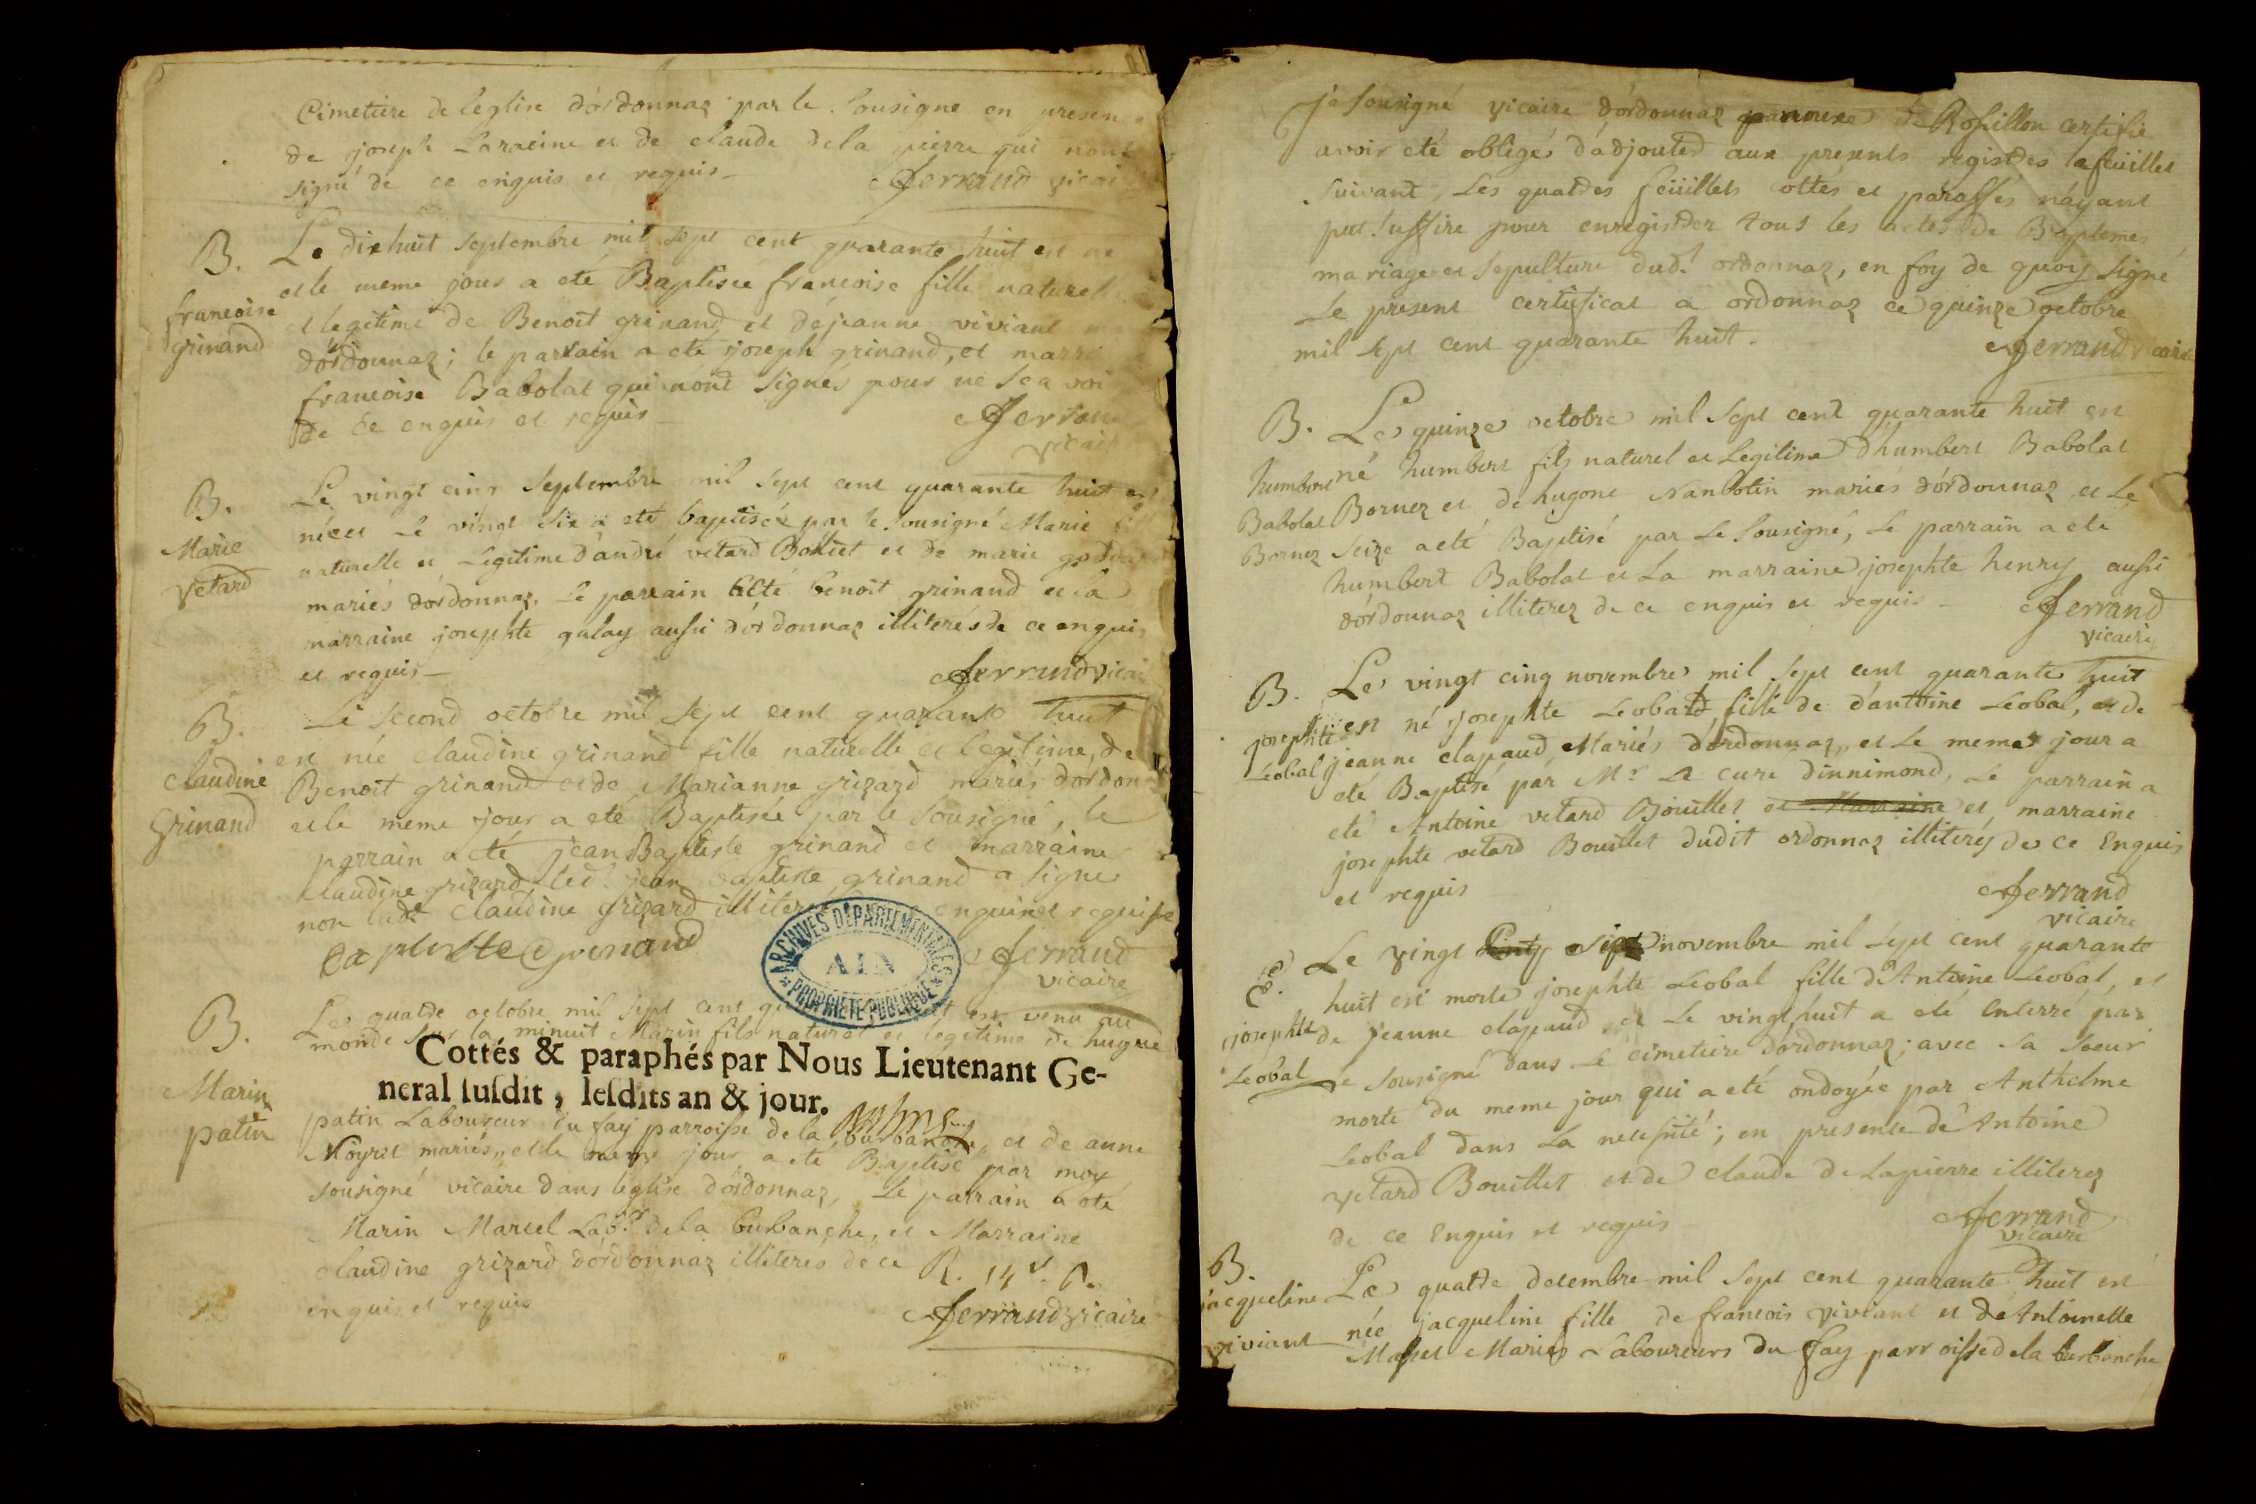 Cimetiere de leglise dórdonnaz par le Sousigne en presen
de joseph Laracine et de claude dela pierre qui nont
signé de ce enquis et requis
ferrand vicai
B.
francoise
grinand
Le dixhuit septembre mil sept cent quarante huit est ne
et le meme jour a eté Baptisee francoise fille naturel
et legitime de Benoit grinand et de jeanne viviant
dórdonnaz; le parrain a eté joseph grinand, et marr
francoise Babolat qui nont signés pour ne sca voi
de ce enquis et requis
ferran
vicai
B.
Marie
vetard
Le vingt cinq Septembre mil sept cent quarante huit est
née et Le vingt six a eté baptisée par le Sousigné Marie
naturelle et Legitime d'andré vetard Boulliet et de marie
mariés dórdonnaz. Le parrain a eté benoit grinand et la
marraine josephte aussi dórdonnaz illiterés de ce enquis
et requis
ferrand vicai
B.
claudine
Grinand
Le Second octobre mil sept cent quarante huit
est née claudine grinand fille naturelle et legitime, de
Benoit grinand et de Marianne grizard mariés dórdon
et le meme jour a eté Baptisée par le Sousigné, le
parrain a eté jean Baptiste grinand et marraine
claudine grizard led. jean baptiste grinand a signe
non lade claudine grizard illiteré enquise et requise
Baptiste Grinand
ferrand
vicaire
ARCHIVES DÉPARTEMENTALES
AIN
PROPRIÉTÉ PUBLIQUE
B.
Marin
patin
Le quatre octobre mil sept cent est venu au
monde sur la minuit Marin fils naturel et legitime de hugue
Cottés & paraphés par Nous Lieutenant Ge-
neral susdit, lesdits an & jour.
patin Laboureur du fay parroisse de la burbanche et de anne
Moyret mariés, et le meme jour a eté Baptisé par moy
sousigné vicaire dans leglise dórdonnaz, Le parrain a eté
Marin Marcel Labr. dela burbanche, et Marraine
claudine grizard dórdonnaz illiteres de ce
enquis et requis
R. 14
ferrand vicaire
je sousigné vicaire dórdonnaz parroisse de Rossillon certifie
avoir eté obligés dádjouter aux presents registres le feuillet
suivant, Les quatres feuillets cottés et paraffés náyant
put suffire pour enregistrer tous les actes de Baptemes
mariage et Sepulture dud. ordonnaz, en foy de quoy signé
Le present certificat a ordonnaz ce quinze octobre
mil sept cent quarante huit.
ferrand vicaire
B.
humbert
Babolat
Bornez
Le quinze octobre mil sept cent quarante huit est
né humbert fils naturel et Legitime Dhumbert Babolat
Bornez et de hugone Nambotin mariés dórdonnaz et Le
seize a eté Baptisé par Le Sousigné, Le parrain a eté
humbert Babolat et La marraine josephte henry aussi
dórdonnaz illiterez de ce enquis et requis
ferrand
vicaire
B.
josephte
Leobal
Le vingt cinq novembre mil sept cent quarante huit
est né josephte Leobard, fille de dantoine Leobal, et de
jeanne clapaud Mariés dordonnaz, et Le meme jour a
eté Baptisé par Mr. Le curé dinnimond, Le parrain a
eté Antoine vetard Bouillet et marraine
josephte vetard Bouillet dudit ordonnaz illiterés de ce Enquis
et requis
ferrand
vicaire
E.
josephte
Leobal
Le vingt Sept novembre mil sept cent quarante
huit est morte josephte Leobal fille d'Antoine Leobal, et
de jeanne clapaud et Le vingt huit a eté Enterré par
Le sousigné dans Le cimetiere dordonnaz; avec sa soeur
morte du meme jour qui a eté ondoyée par Anthelme
Leobal dans La necessité; en presence de Antoine
vetard Bouillet et de claude de Lapierre illiterez
de ce Enquis et requis
ferrand
vicaire
B.
jacqueline
viviant
Le quatre decembre mil sept cent quarante huit est
née jacqueline fille de francois viviant et de Antoinette
Masset Mariés Laboureurs du fay parroisse dela burbanche